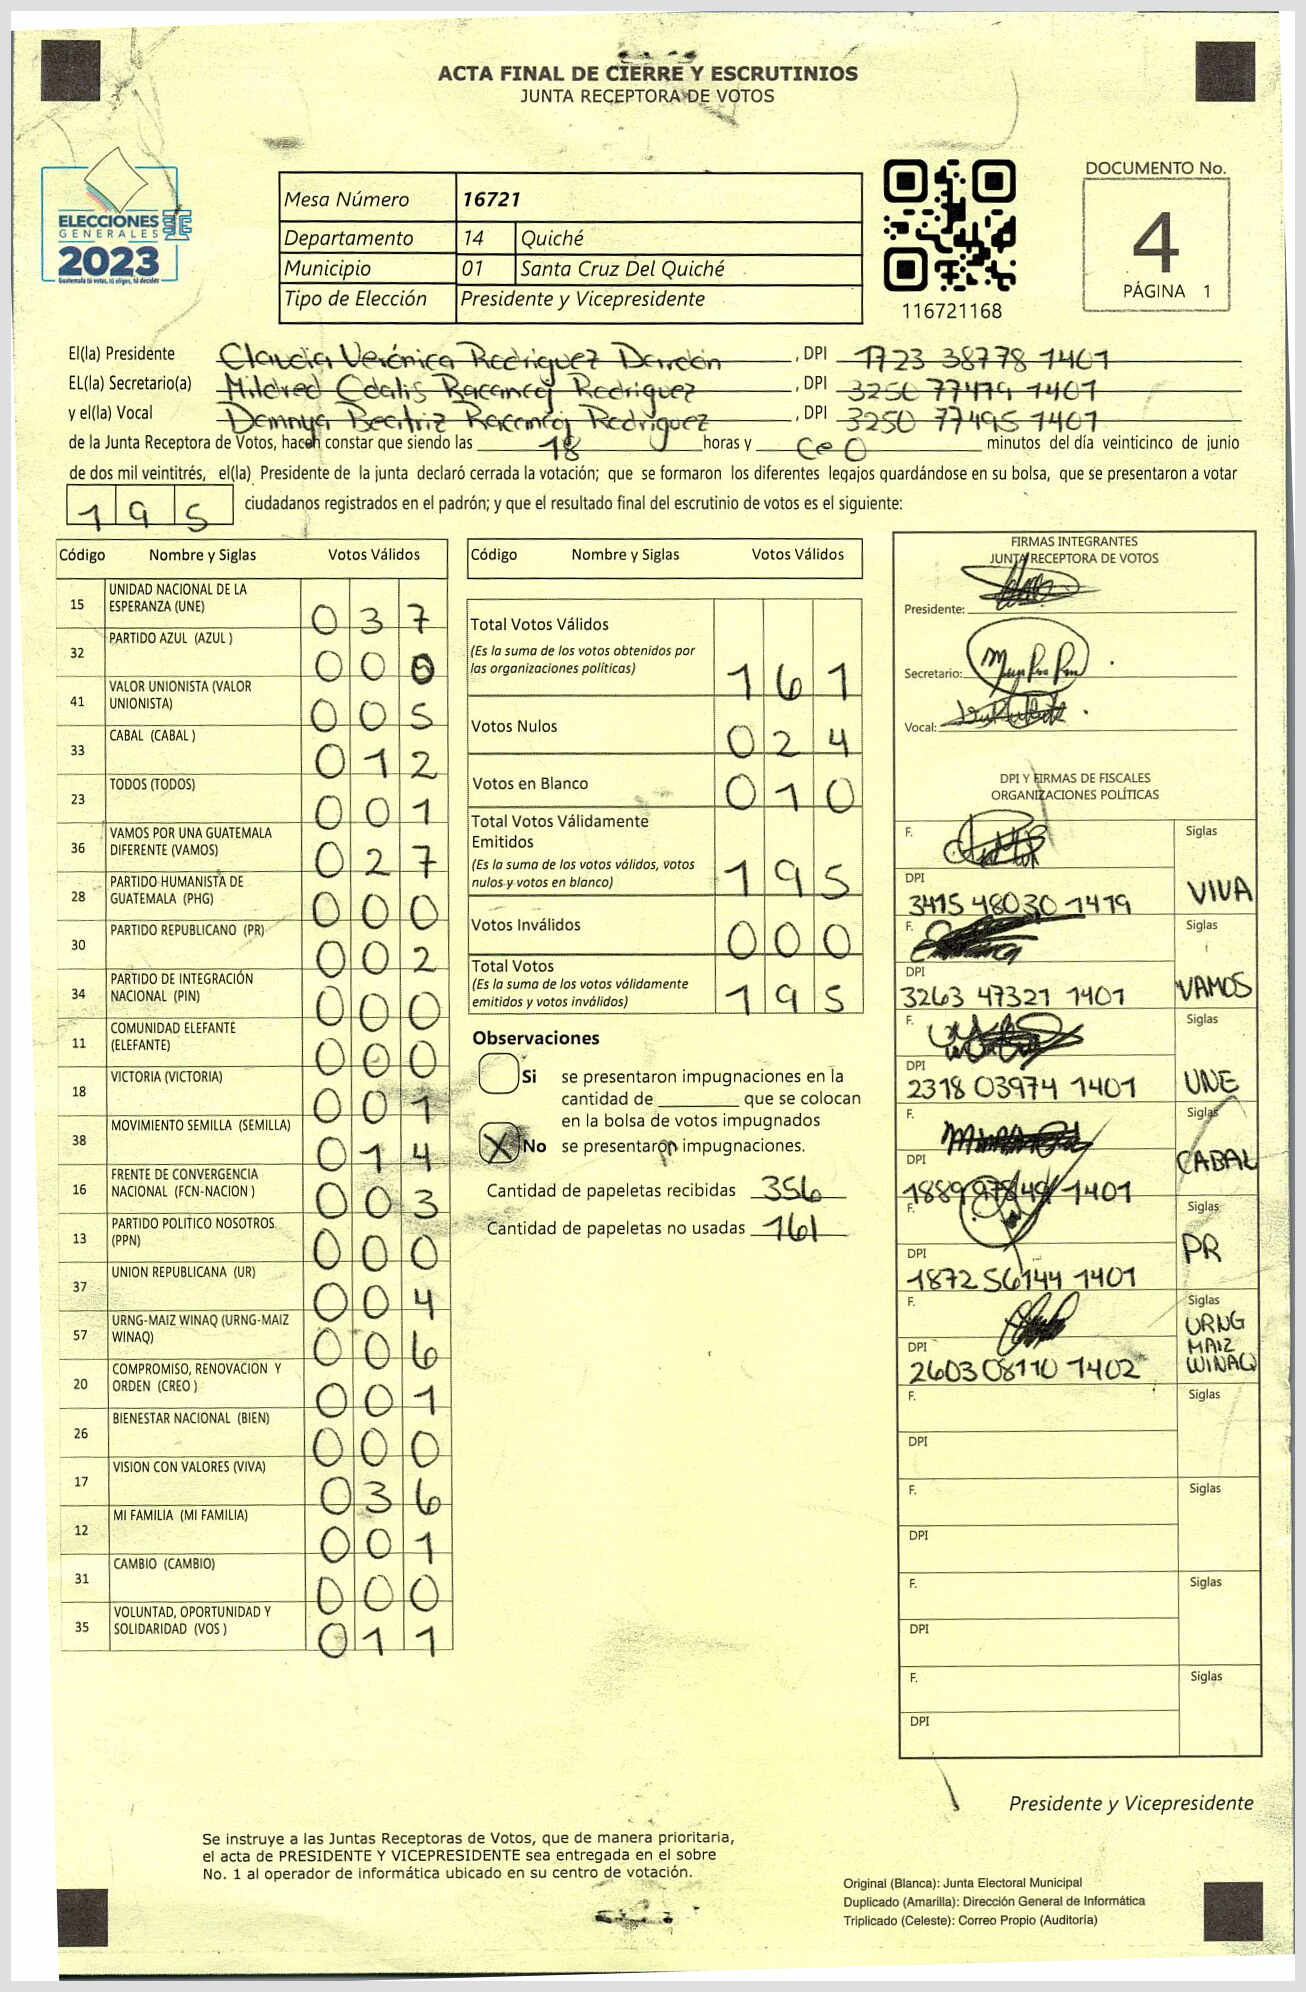 ACTA FINAL DE CIERRE Y ESCRUTINIOS
JUNTA RECEPTORA DE VOTOS
ELECCIONES
GENERALES
2023
Guatemala tú votas, tú eliges, tú decides
Mesa Número 16721
Departamento 14 Quiché
Municipio 01 Santa Cruz Del Quiché
Tipo de Elección Presidente y Vicepresidente
116721168
DOCUMENTO No.
4
PÁGINA 1
El(la) Presidente Claudia Verónica Rodriguez Dardón , DPI 1723 38778 1401
EL(la) Secretario(a) Mildred Odalis Racancoj Rodriguez , DPI 3250 77479 1401
y el(la) Vocal Beatriz Racancoj Rodriguez , DPI 3250 77495 1401
de la Junta Receptora de Votos, hacen constar que siendo las 18 horas y cero minutos del día veinticinco de junio
de dos mil veintitrés, el(la) Presidente de la junta declaró cerrada la votación; que se formaron los diferentes legajos quardándose en su bolsa, que se presentaron a votar
195 ciudadanos registrados en el padrón; y que el resultado final del escrutinio de votos es el siguiente:
Código Nombre y Siglas Votos Válidos
15 UNIDAD NACIONAL DE LA ESPERANZA (UNE) 037
32 PARTIDO AZUL (AZUL ) 000
41 VALOR UNIONISTA (VALOR UNIONISTA) 005
33 CABAL (CABAL ) 012
23 TODOS (TODOS) 001
36 VAMOS POR UNA GUATEMALA DIFERENTE (VAMOS) 027
28 PARTIDO HUMANISTA DE GUATEMALA (PHG) 000
30 PARTIDO REPUBLICANO (PR) 002
34 PARTIDO DE INTEGRACIÓN NACIONAL (PIN) 000
11 COMUNIDAD ELEFANTE (ELEFANTE) 000
18 VICTORIA (VICTORIA) 001
38 MOVIMIENTO SEMILLA (SEMILLA) 014
16 FRENTE DE CONVERGENCIA NACIONAL (FCN-NACION ) 003
13 PARTIDO POLITICO NOSOTROS (PPN) 000
37 UNION REPUBLICANA (UR) 004
57 URNG-MAIZ WINAQ (URNG-MAIZ WINAQ) 006
20 COMPROMISO, RENOVACION Y ORDEN (CREO ) 001
26 BIENESTAR NACIONAL (BIEN) 000
17 VISION CON VALORES (VIVA) 036
12 MI FAMILIA (MI FAMILIA) 001
31 CAMBIO (CAMBIO) 000
35 VOLUNTAD, OPORTUNIDAD Y SOLIDARIDAD (VOS ) 011
Código Nombre y Siglas Votos Válidos
Total Votos Válidos 161
(Es la suma de los votos obtenidos por
las organizaciones políticas)
Votos Nulos 024
Votos en Blanco 010
Total Votos Válidamente
Emitidos 195
(Es la suma de los votos válidos, votos
nulos y votos en blanco)
Votos Inválidos 000
Total Votos 195
(Es la suma de los votos válidamente
emitidos y votos inválidos)
Observaciones
Si se presentaron impugnaciones en la
cantidad de ________ que se colocan
en la bolsa de votos impugnados
X No se presentaron impugnaciones.
Cantidad de papeletas recibidas 356
Cantidad de papeletas no usadas 161
FIRMAS INTEGRANTES
JUNTA RECEPTORA DE VOTOS
Presidente:
Secretario:
Vocal:
DPI Y FIRMAS DE FISCALES
ORGANIZACIONES POLÍTICAS
F. Siglas
DPI 3415 48030 1419 VIVA
F. Siglas
DPI 3263 47321 1401 VAMOS
F. Siglas
DPI 2318 03974 1401 UNE
F. Siglas
DPI 1889 97849 1401 CABAL
F. Siglas
DPI 1872 56144 1401 PR
F. Siglas
DPI 2603 08110 1402 URNG MAIZ WINAQ
F. Siglas
DPI
F. Siglas
DPI
F. Siglas
DPI
F. Siglas
DPI
Presidente y Vicepresidente
Se instruye a las Juntas Receptoras de Votos, que de manera prioritaria,
el acta de PRESIDENTE Y VICEPRESIDENTE sea entregada en el sobre
No. 1 al operador de informática ubicado en su centro de votación.
Original (Blanca): Junta Electoral Municipal
Duplicado (Amarilla): Dirección General de Informática
Triplicado (Celeste): Correo Propio (Auditoría)